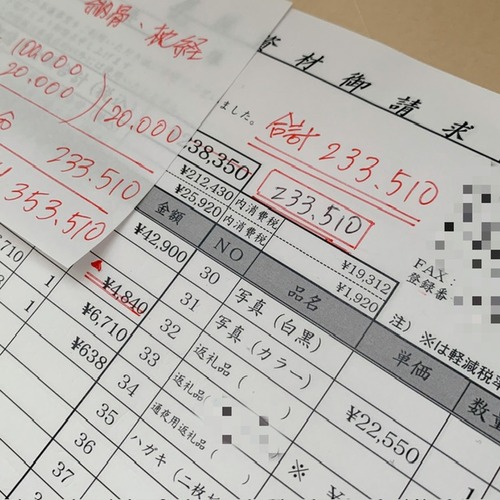 納骨、枕経
100.000
20.000
120.000
233.510
353.510
資材御請求
ました。
合計 233.510
38,350
233,510
¥212,430 内消費税 ¥19,312
¥25,920 内消費税 ¥1,920
FAX:
登録番
注) ※は軽減税率
金額 NO 品名 単価 数量
¥42,900 30 写真(白黒)
¥4,840 31 写真(カラー)
¥6,710 32 返礼品( ) ¥22,550
¥638 33 返礼品( )
34 通夜用返礼品( ) ※
35 ハガキ(二枚
36
37
6,710 1
1
1